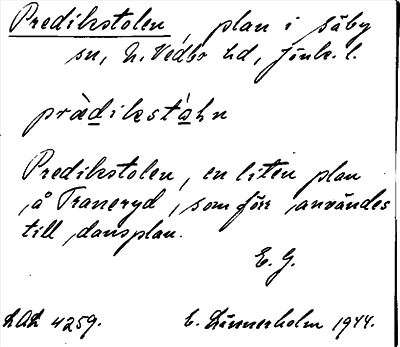 Predikstolen, plan i Säby
sn, N. Vedbo hd, Jönk. l.
prädikstahn
Predikstolen, en liten plan
å Traneryd, som förr användes
till dansplan.
E. G.
LAL 4259. E. Linnerholm 1944.